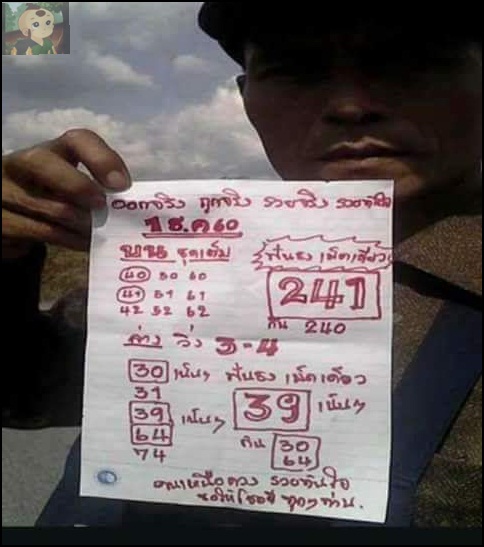 ออกจริง ถูกจริง รวยจริง รวยทันใจ
1 ธ.ค 60
บน ชุดเต็ม
ฟันธง เม็ดเดียว
40 50 60
241
41 51 61
42 52 62
กัน 240
ล่าง วิ่ง 3-4
30 เน้นๆ ฟันธง เม็ดเดียว
31
39 เน้นๆ 39 เน้นๆ
64
74
กัน 30
64
คนเหนือดวง รวยทันใจ
ขอให้โชคดี ทุกๆท่าน.